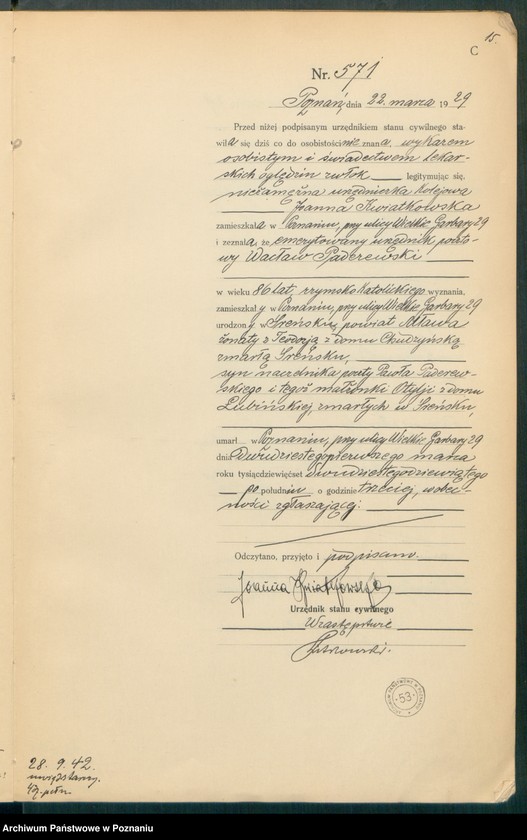 15.
C
Nr. 571
Poznań, dnia 22. marca 1929
Przed niżej podpisanym urzędnikiem stanu cywilnego sta-
wiła się dziś co do osobistości nie znana, wykazem
osobistym i świadectwem lekar-
skich oględzin zwłok legitymując się,
niezamężna urzędniczka kolejowa
Joanna Kwiatkowska
zamieszkała w Poznaniu, przy ulicy Wielkie Garbary 29
i zeznała, że emerytowany urzędnik poczto-
wy Wacław Paderewski
w wieku 86 lat, rzymsko katolickiego wyznania,
zamieszkały w Poznaniu, przy ulicy Wielkie Garbary 29
urodzony w Szreńsku, powiat Mława
żonaty z Teodozją z domu Chudzyńską
zmarłą Szreńsku,
syn naczelnika poczty Pawła Paderew-
skiego i tegoż małżonki Otylji z domu
Lubińskiej, zmarłych w Szreńsku,
umarł w Poznaniu, przy ulicy Wielkie Garbary 29
dnia dwudziestego pierwszego marca
roku tysiącdziewięćset dwudziestego dziewiątego
po południu o godzinie trzeciej, wobec-
ności zgłaszającej.
Odczytano, przyjęto i podpisano.
Joanna Kwiatkowska
Urzędnik stanu cywilnego
W zastępstwie
53
28. 9. 42.
Archiwum Państwowe w Poznaniu